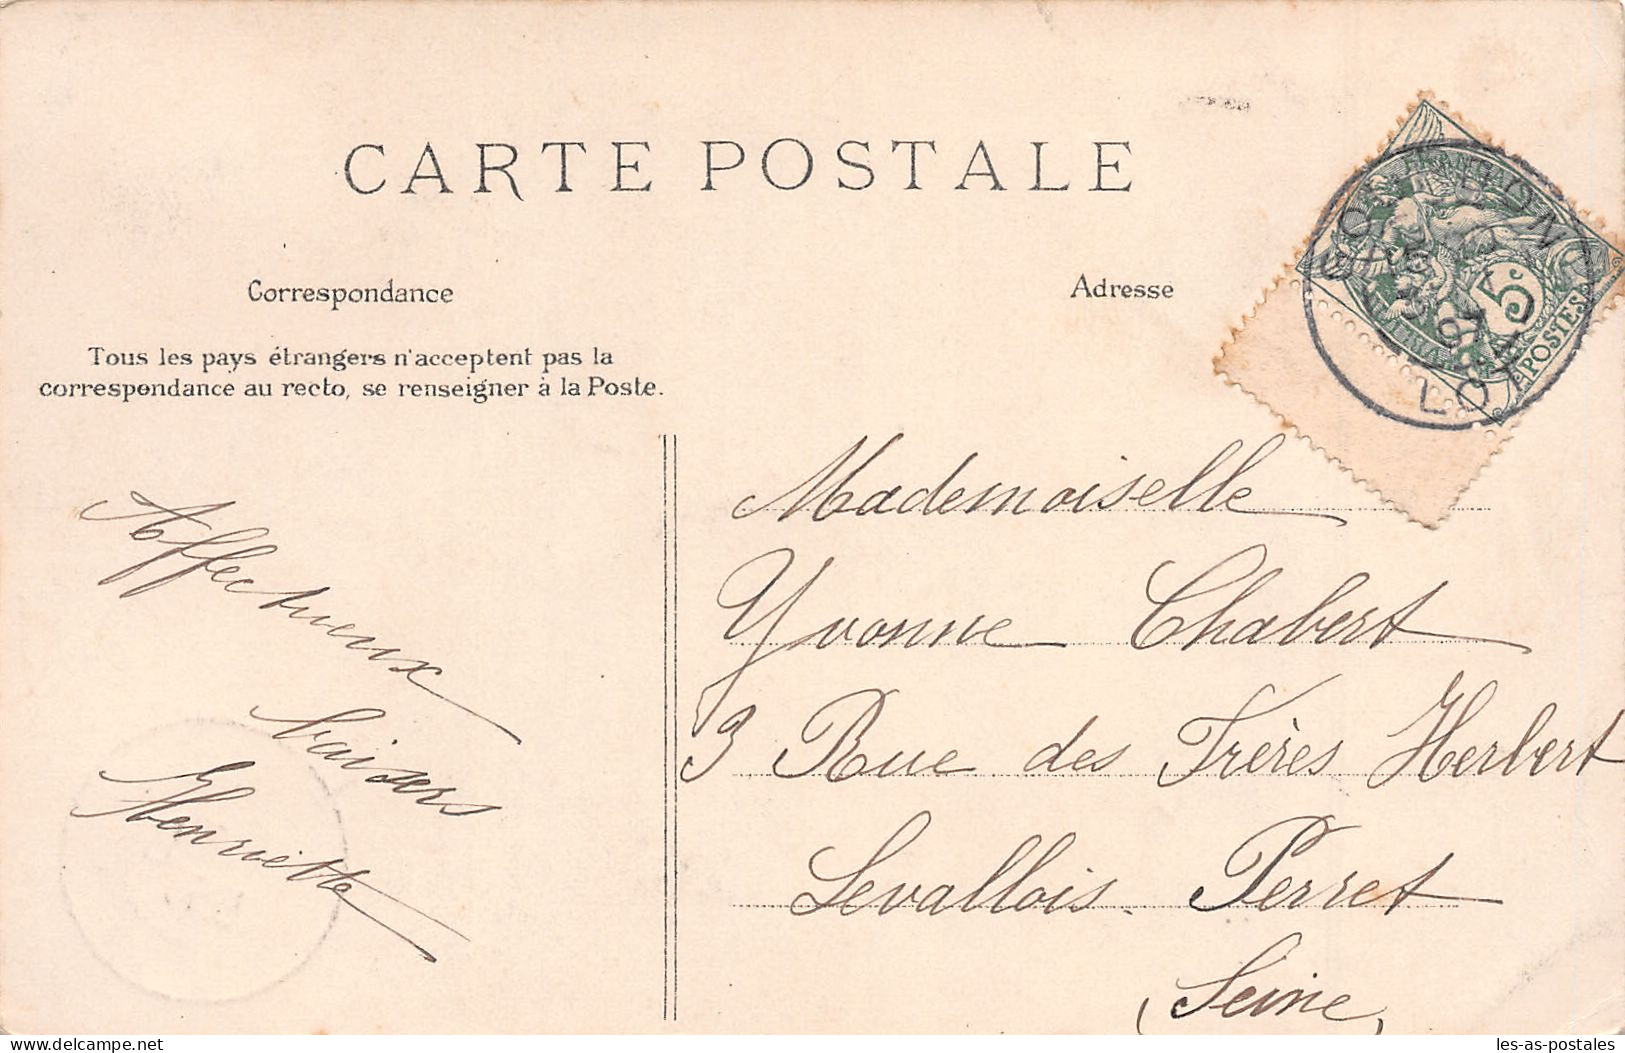 CARTE POSTALE
Correspondance
Adresse
Tous les pays étrangers n'acceptent pas la
correspondance au recto, se renseigner à la Poste.
GOURDON
LOT
5c
POSTES
Affectueux
baisers
Henriette
Mademoiselle
Yvonne Chabert
3 Rue des Frères Herbert
Levallois. Perret
(Seine)
les-as-postales